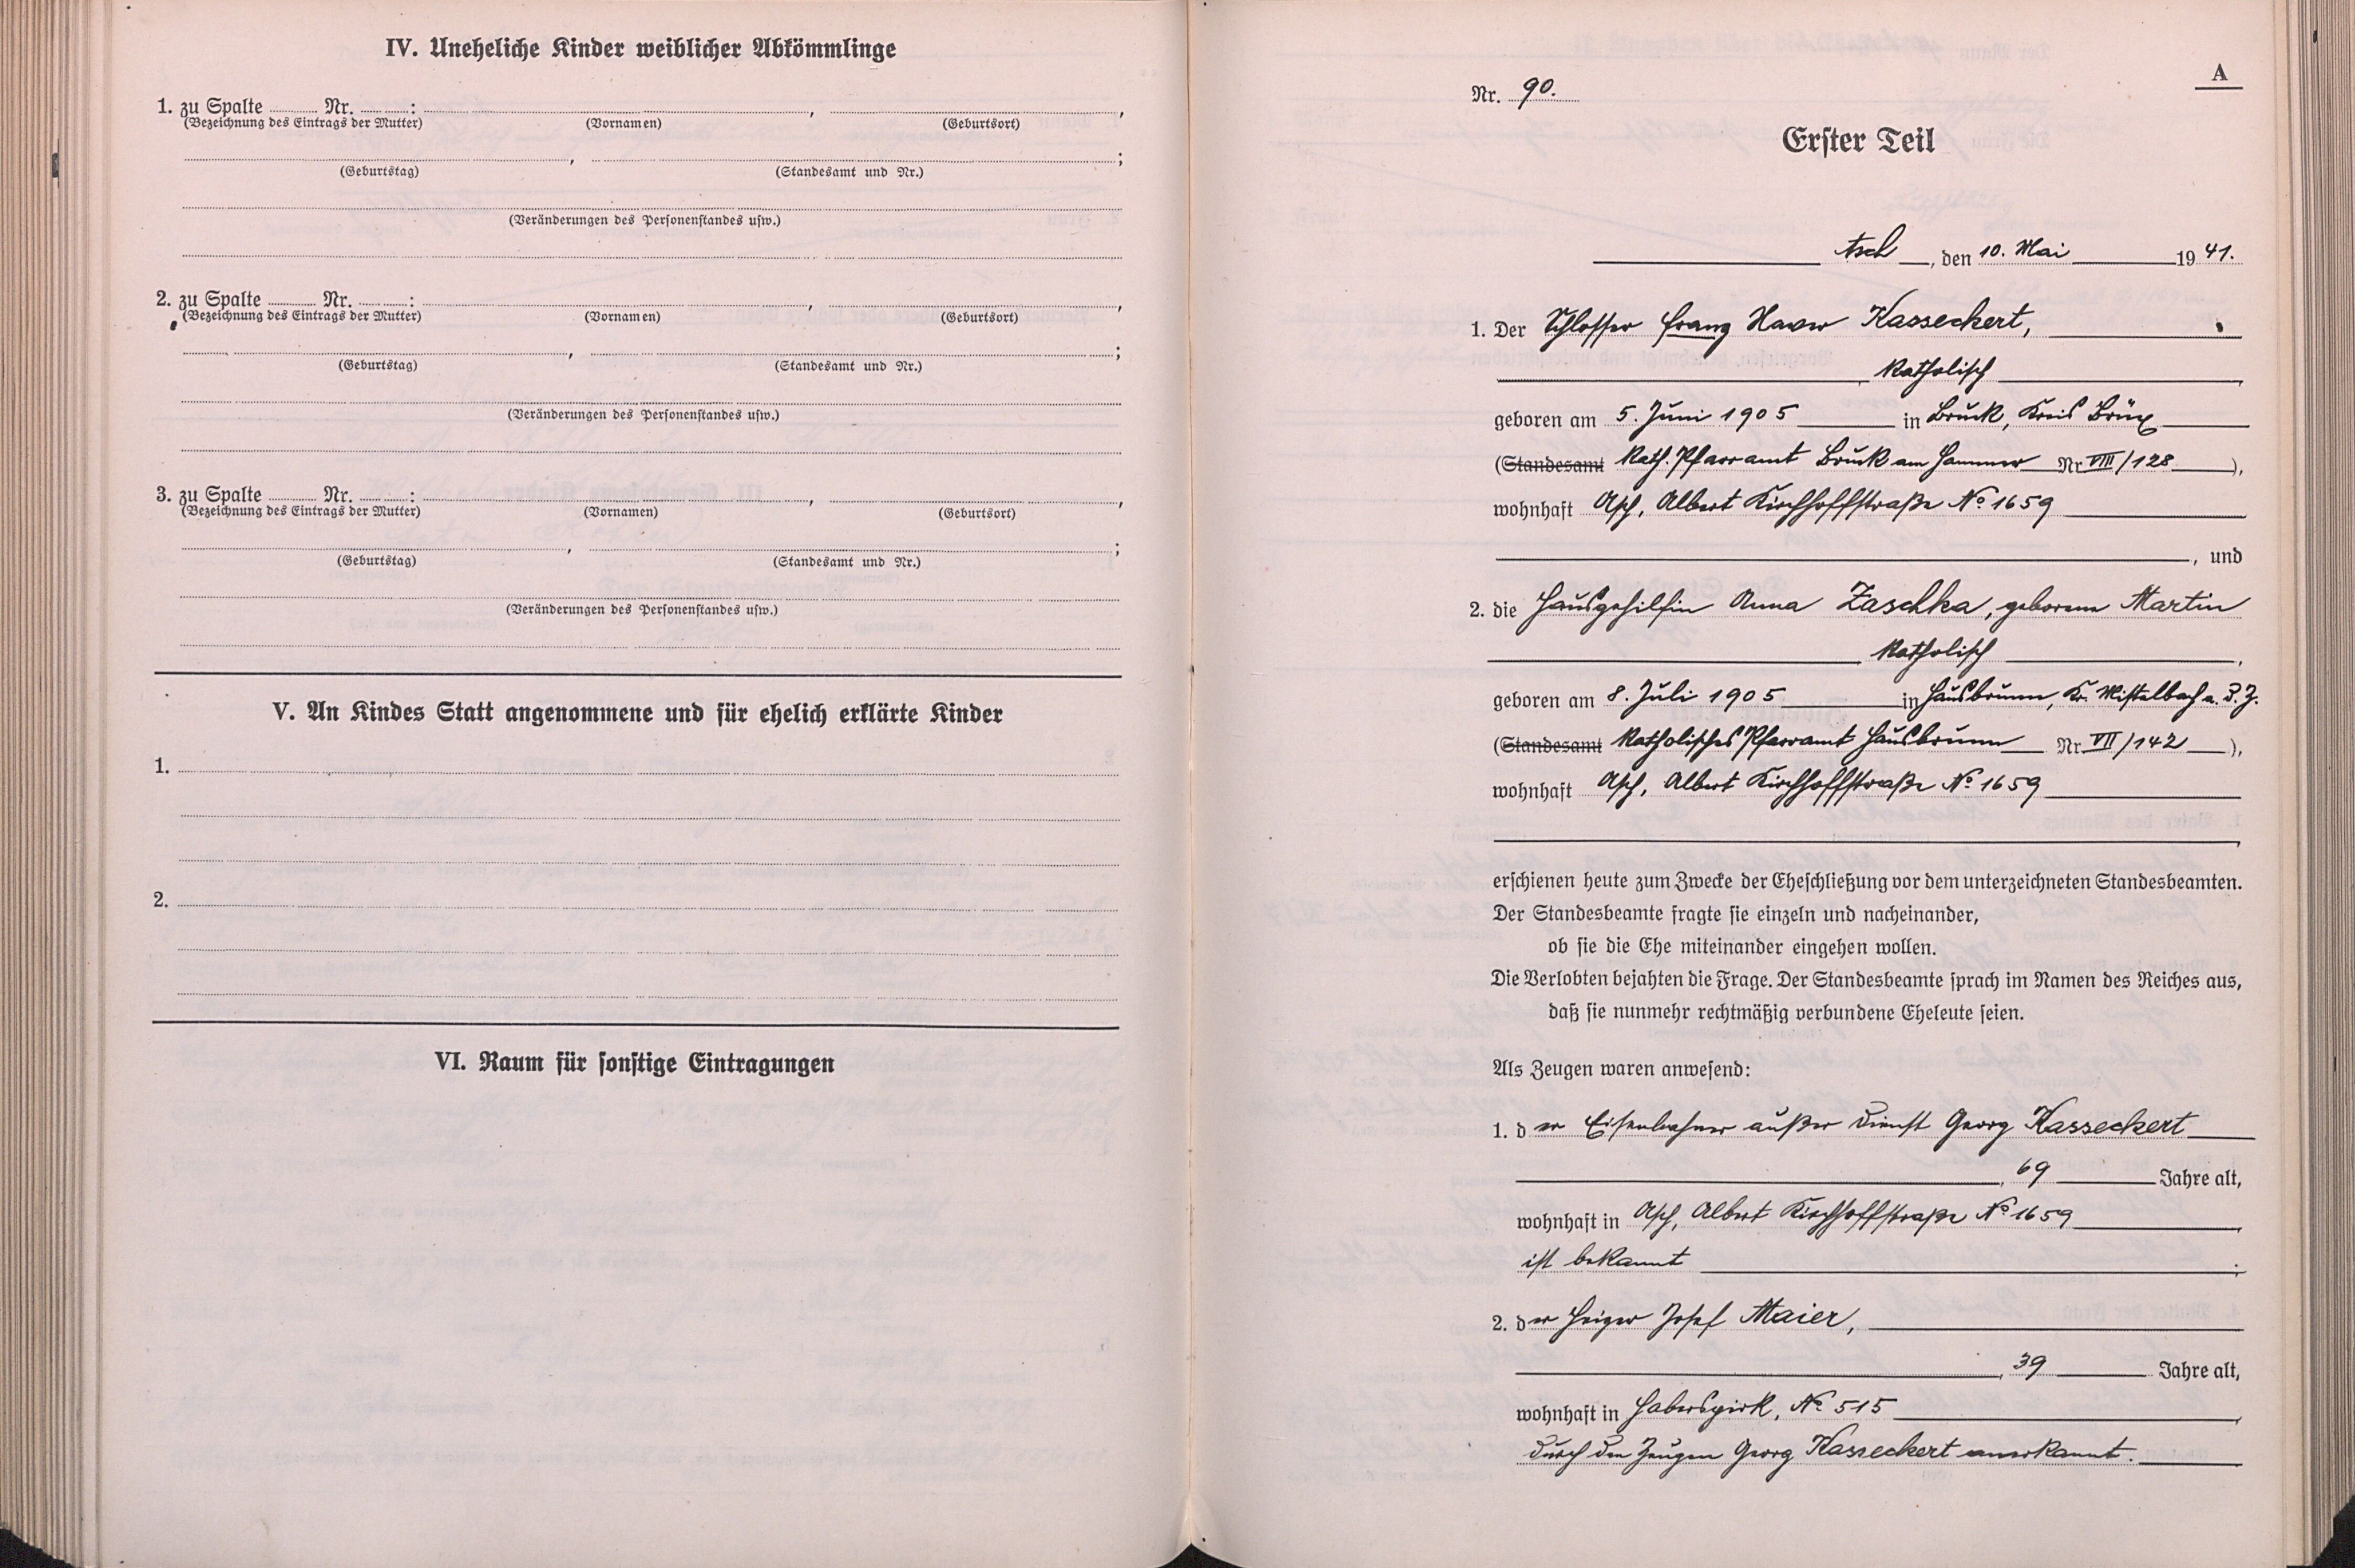 IV. Uneheliche Kinder weiblicher Abkömmlinge
1. zu Spalte ........ Nr. ........: , ,
(Bezeichnung des Eintrags der Mutter) (Vornamen) (Geburtsort)
, ;
(Geburtstag) (Standesamt und Nr.)
(Veränderungen des Personenstandes usw.)
2. zu Spalte ........ Nr. ........: , ,
(Bezeichnung des Eintrags der Mutter) (Vornamen) (Geburtsort)
, ;
(Geburtstag) (Standesamt und Nr.)
(Veränderungen des Personenstandes usw.)
3. zu Spalte ........ Nr. ........: , ,
(Bezeichnung des Eintrags der Mutter) (Vornamen) (Geburtsort)
, ;
(Geburtstag) (Standesamt und Nr.)
(Veränderungen des Personenstandes usw.)
V. An Kindes Statt angenommene und für ehelich erklärte Kinder
1.
2.
VI. Raum für sonstige Eintragungen
A
Nr. 90.
Erster Teil
Asch, den 10. Mai 1941.
1. Der Schlosser Franz Xaver Kasseckert,
katholisch
geboren am 5. Juni 1905 in Bruck, Kreis Brüx
(Standesamt Kath. Pfarramt Bruck am Hammer Nr. VIII/128),
wohnhaft Asch, Albert Kirchhoffstraße No 1659
, und
2. die Hausgehilfin Anna Zaschka, geborene Martin
katholisch,
geboren am 8. Juli 1905 in Hausbrunn, Kr. Mistelbach a. d. Z.
(Standesamt Katholisches Pfarramt Hausbrunn Nr. VII/142),
wohnhaft Asch, Albert Kirchhoffstraße No 1659
erschienen heute zum Zwecke der Eheschließung vor dem unterzeichneten Standesbeamten.
Der Standesbeamte fragte sie einzeln und nacheinander,
ob sie die Ehe miteinander eingehen wollen.
Die Verlobten bejahten die Frage. Der Standesbeamte sprach im Namen des Reiches aus,
daß sie nunmehr rechtmäßig verbundene Eheleute seien.
Als Zeugen waren anwesend:
1. der Eisenbahner außer Dienst Georg Kasseckert
, 69 Jahre alt,
wohnhaft in Asch, Albert Kirchhoffstraße No 1659
ist bekannt ;
2. der Heizer Josef Maier,
, 39 Jahre alt,
wohnhaft in Haberspirk, No 515
durch den Zeugen Georg Kasseckert anerkannt.